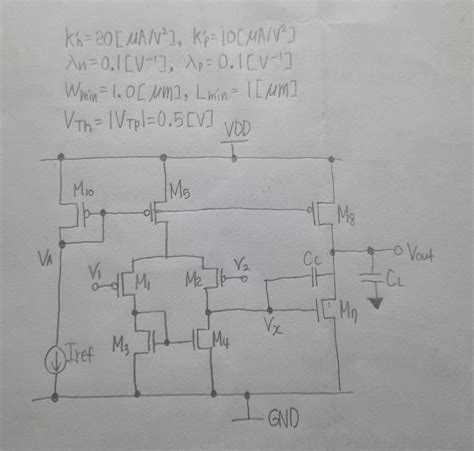 k'n = 20 [μA/V²], k'p = 10 [μA/V²]
λn = 0.1 [V⁻¹], λp = 0.1 [V⁻¹]
Wmin = 1.0 [μm], Lmin = 1 [μm]
VTn = |VTp| = 0.5 [V]
VDD
M10
M5
M8
VA
V1
M1
M2
V2
Cc
Vout
CL
Iref
M3
M4
Vx
M7
GND